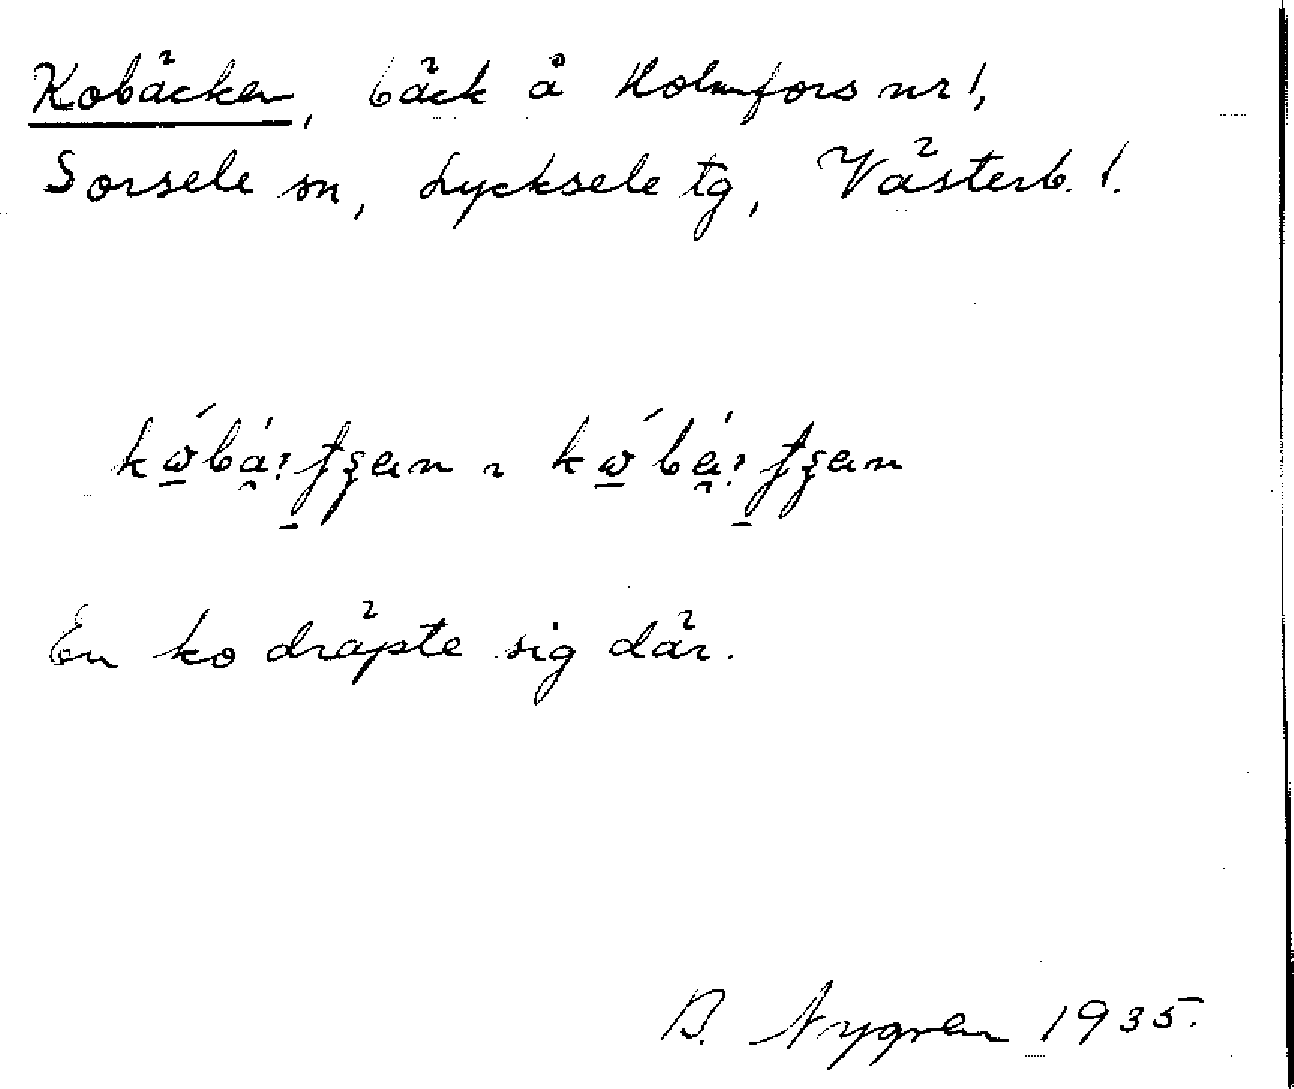 Kobäcken, bäck å Holmfors nr 1,
Sorsele sn, Lycksele tg, Västerb. l.
En ko dräpte sig där.
B. Nygren 1935.